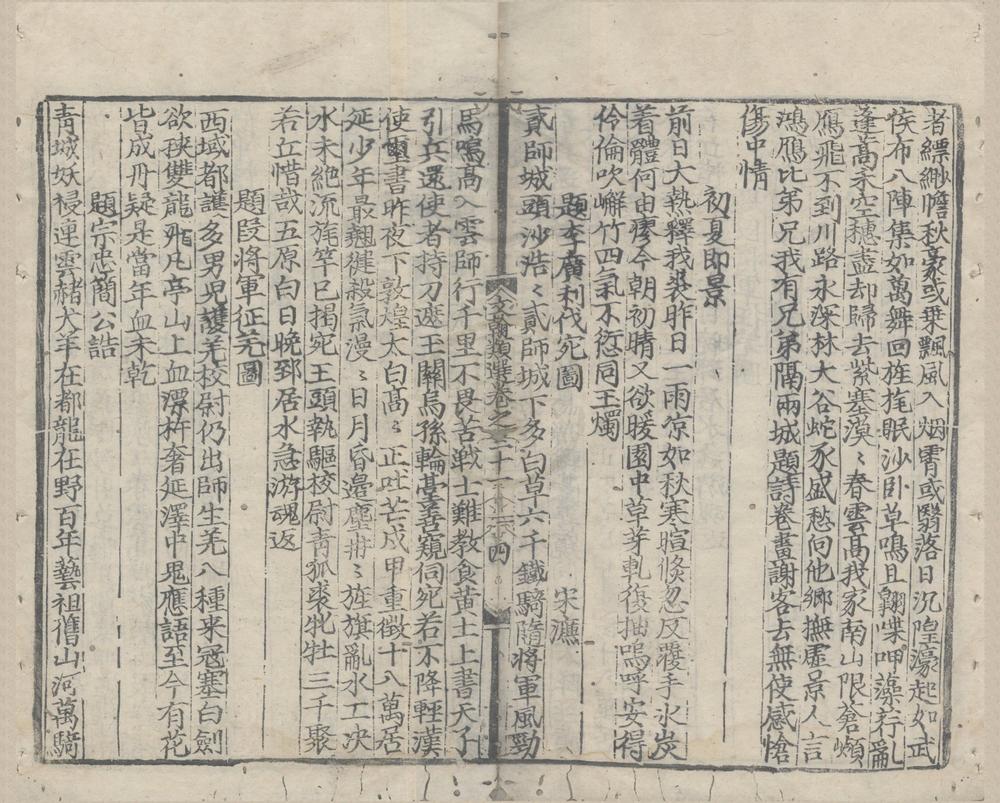 者縹緲瞻秋豪或乗飄風入烟霄或翳落日沉隍濠起如武
侯布八陣集如萬舞回旌旄眠沙卧草鳴且翱喋呷藻荇亂
蓬蒿禾空穗盡却歸去紫塞漠〻春雲高我家南山限蒼
鴈飛不到川路永深林大谷蛇豕盛愁问他鄉撫虛景人言
鴻鴈比弟兄我有兄弟隔兩城題詩卷畫謝客去無使感愴
傷中情
初夏即景
前日大熱釋我裘昨日一雨凉如秋寒暄倐忽反覆手氷炭
着體何由瘳今朝初晴又欲暖園中草芽軋復抽嗚呼安得
伶倫吹嶰竹四氣不愆同玉燭
題李廣利伐宛圖
宋濂
貳師城頭沙浩〻貳師城下多白草六千鐵騎隨將軍風勁
馬鳴高入雲師行千里不畏苦戰士難教食黃土上書天子
引兵還使者持刀遮玉關烏孫輪臺善窺伺宛若不降輕漢
使璽書昨夜下敦煌太白高〻正吐芒戍甲重徵十八萬居
延少年最翹健殺氣漫〻日月昏邊塵冉〻旌旗亂水工决
水未絶流旄竿已揭宛王頭執驅校尉青狐裘牝牡三千聚
若丘惜哉五原白日晚郅居水急游魂返
題段將軍征羌圖
西域都護多男児護羌校尉仍出師生羌八種来冠塞白劍
欲狭雙龍飛凡亭山上血漂杵奢延澤中鬼應語至今有花
皆成丹疑是當年血未乾
題宗忠簡公誥
青城妖祲連雲赭犬羊在都龍在野百年藝祖舊山河萬騎
文翰類選卷之二十一
四